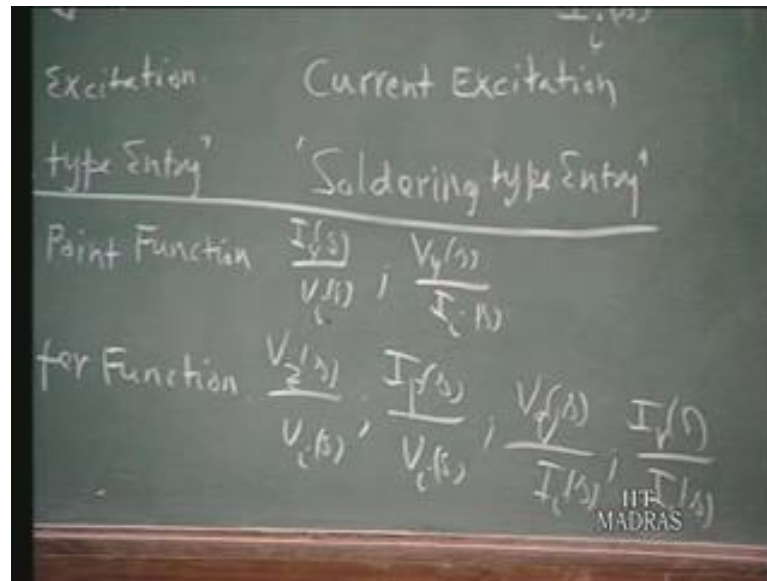 I_i(s)
Excitation Current Excitation
type Entry" "Soldering type Entry"
Point Function I_y(s)/V_i(s) ; V_y(s)/I_i(s)
fer Function V_2(s)/V_i(s) , I_p(s)/V_i(s) ; V_q(s)/I_i(s) , I_r(s)/I(s)
IIT
MADRAS